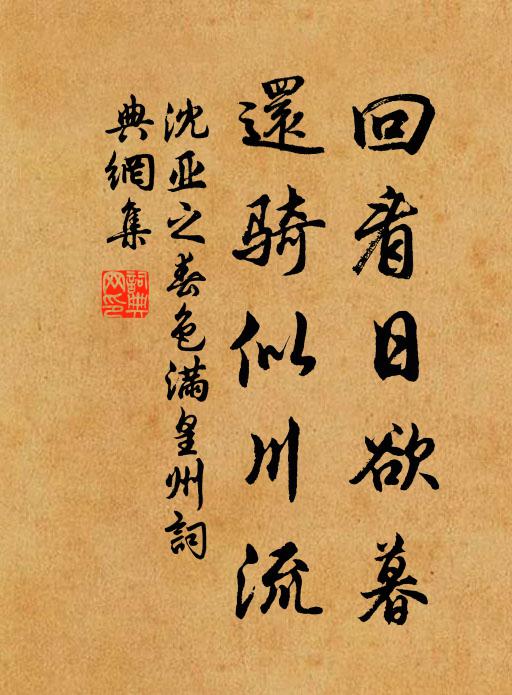 回看日欲暮
還騎似川流
沈亚之春色滿皇州詞
典網集
詞典
网印